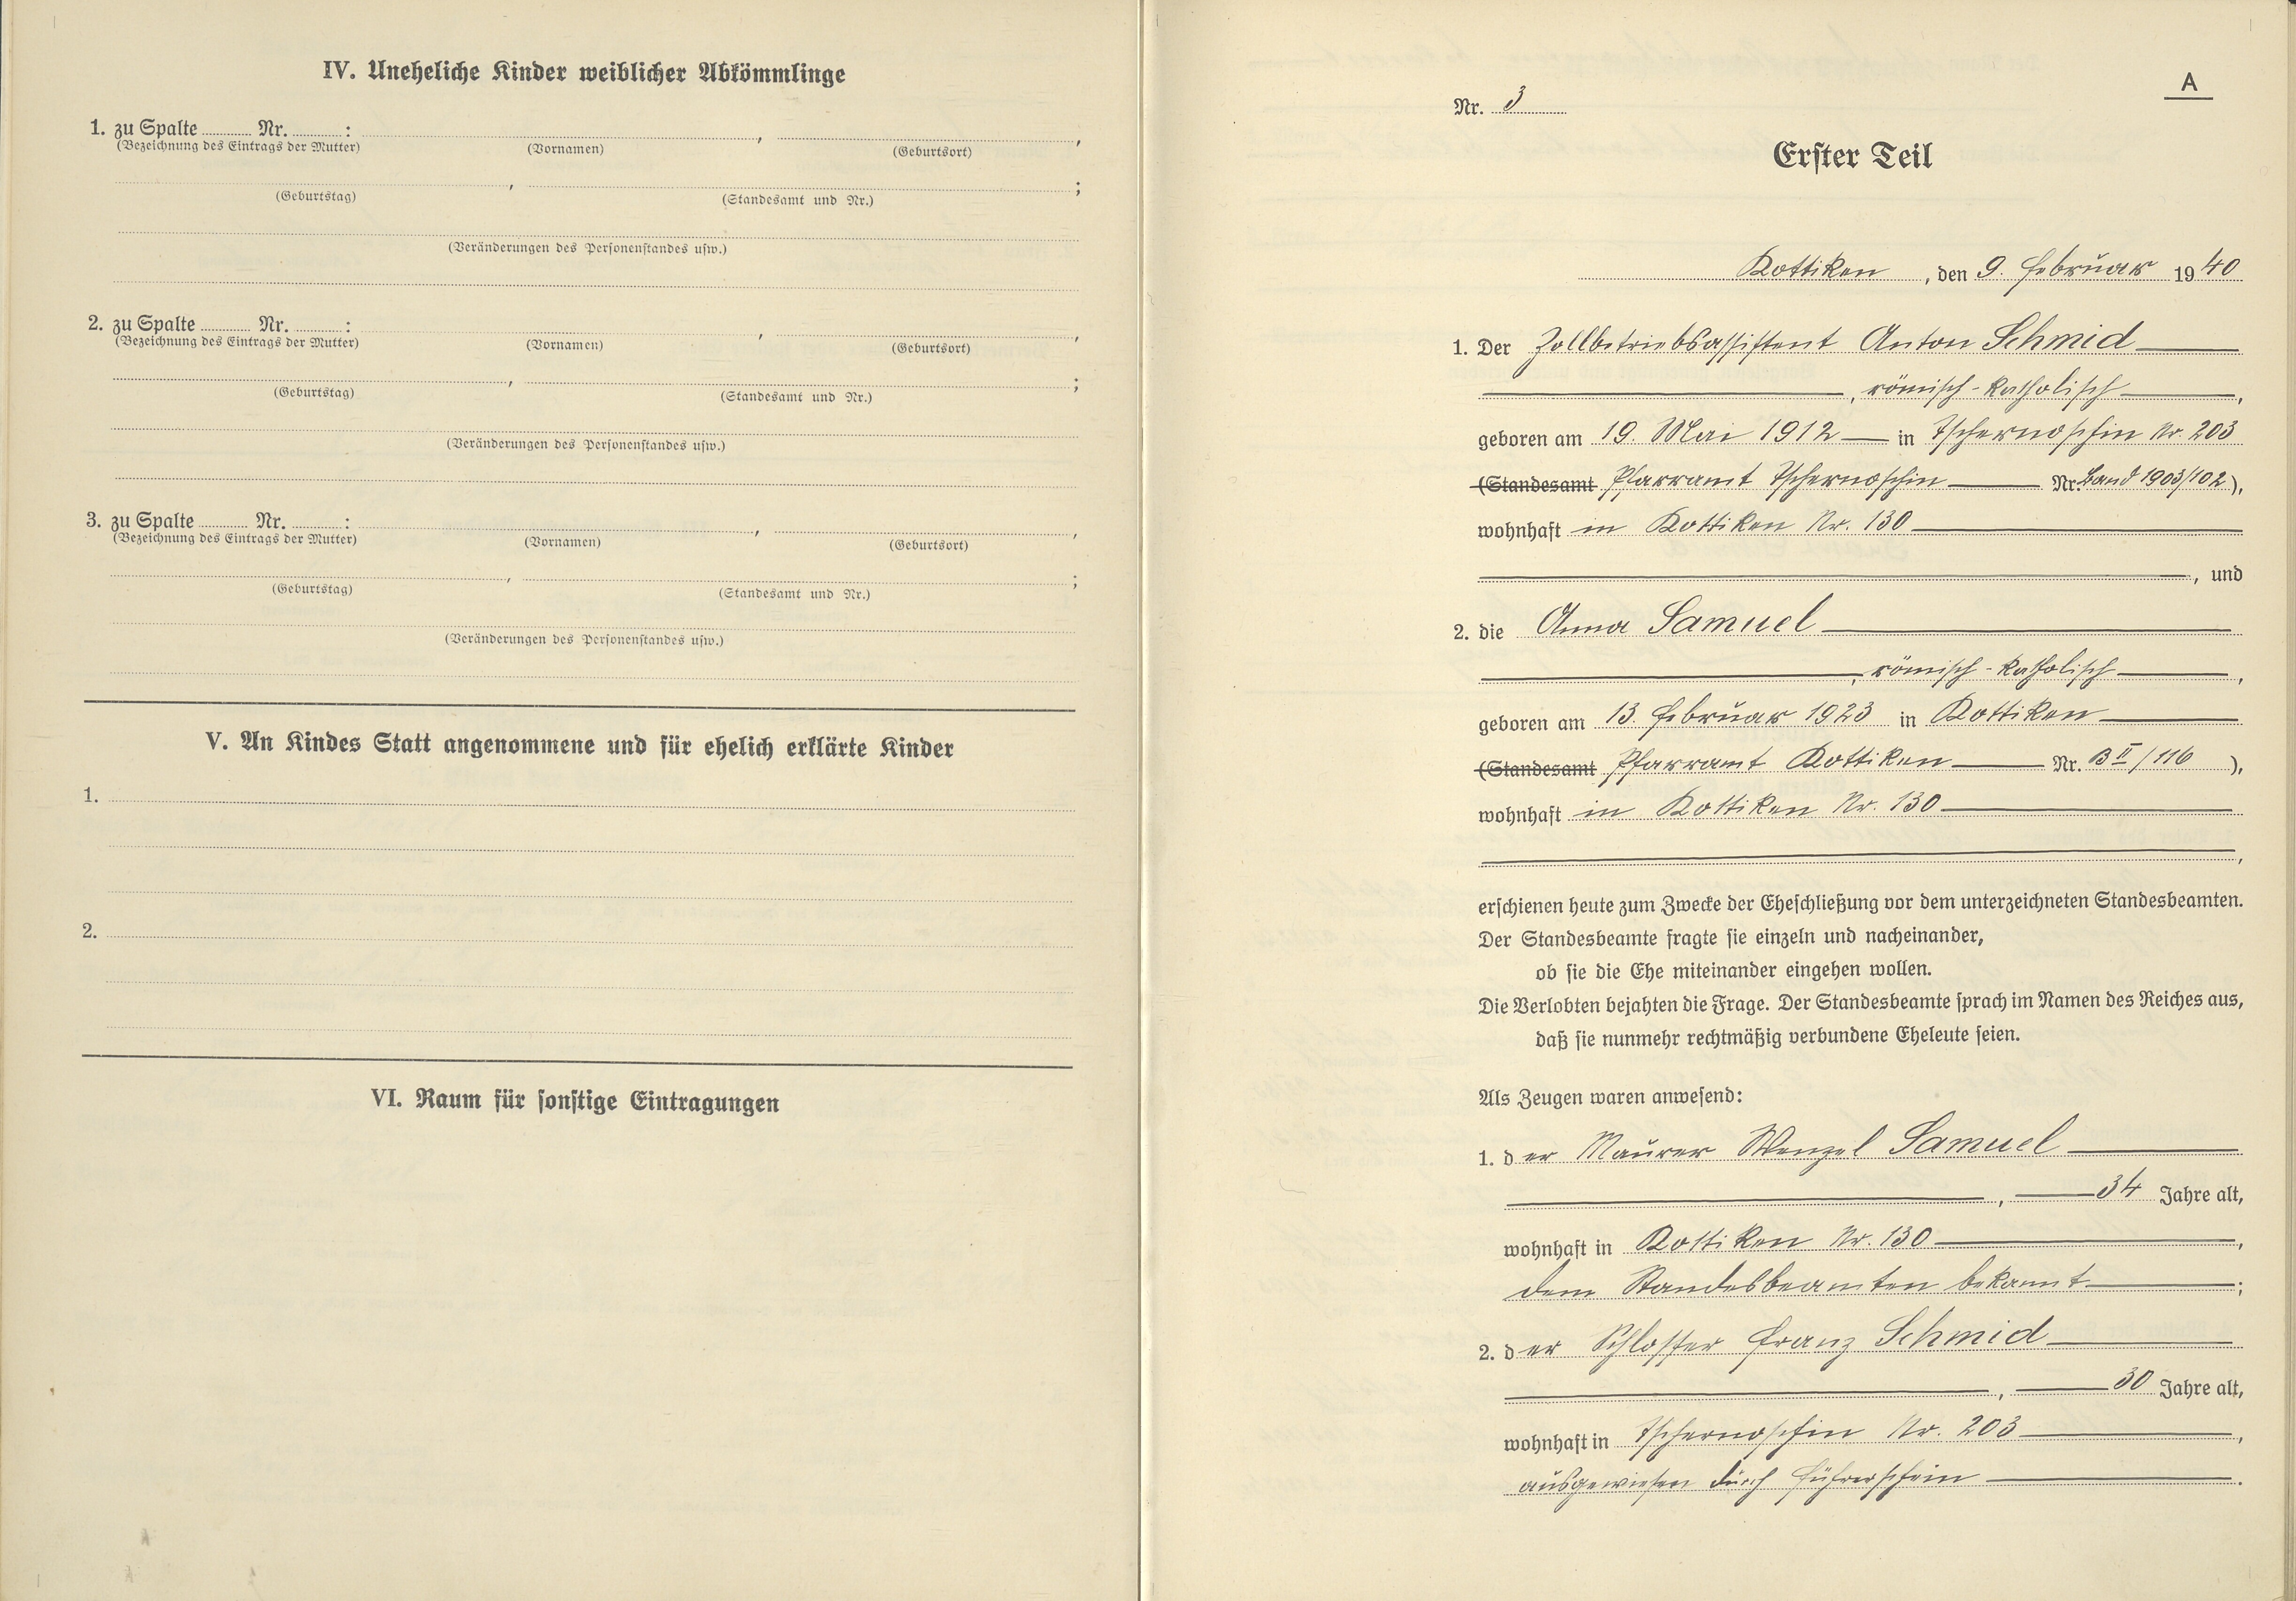 IV. Uneheliche Kinder weiblicher Abkömmlinge
1. zu Spalte ............ Nr. ............ : ............ , ............ ,
(Bezeichnung des Eintrags der Mutter) (Vornamen) (Geburtsort)
............ , ............ ;
(Geburtstag) (Standesamt und Nr.)
(Veränderungen des Personenstandes usw.)
2. zu Spalte ............ Nr. ............ : ............ , ............ ,
(Bezeichnung des Eintrags der Mutter) (Vornamen) (Geburtsort)
............ , ............ ;
(Geburtstag) (Standesamt und Nr.)
(Veränderungen des Personenstandes usw.)
3. zu Spalte ............ Nr. ............ : ............ , ............ ,
(Bezeichnung des Eintrags der Mutter) (Vornamen) (Geburtsort)
............ , ............ ;
(Geburtstag) (Standesamt und Nr.)
(Veränderungen des Personenstandes usw.)
V. An Kindes Statt angenommene und für ehelich erklärte Kinder
1.
2.
VI. Raum für sonstige Eintragungen
A
Nr. 3
Erster Teil
Kottiken, den 9. Februar 1940
1. Der Zollbetriebsassistent Anton Schmid
, römisch-katholisch ,
geboren am 19. Mai 1912 in Tschernoschin Nr. 203
(Standesamt Pfarramt Tschernoschin Nr. Band 1903/102),
wohnhaft in Kottiken Nr. 130
, und
2. die Anna Samuel
, römisch-katholisch ,
geboren am 13. Februar 1923 in Kottiken
(Standesamt Pfarramt Kottiken Nr. B II/116 ),
wohnhaft in Kottiken Nr. 130
,
erschienen heute zum Zwecke der Eheschließung vor dem unterzeichneten Standesbeamten.
Der Standesbeamte fragte sie einzeln und nacheinander,
ob sie die Ehe miteinander eingehen wollen.
Die Verlobten bejahten die Frage. Der Standesbeamte sprach im Namen des Reiches aus,
daß sie nunmehr rechtmäßig verbundene Eheleute seien.
Als Zeugen waren anwesend:
1. der Maurer Wenzel Samuel
, 34 Jahre alt,
wohnhaft in Kottiken Nr. 130 ,
dem Standesbeamten bekannt ;
2. der Schlosser Franz Schmid
, 30 Jahre alt,
wohnhaft in Tschernoschin Nr. 203 ,
ausgewiesen durch Führerschein .